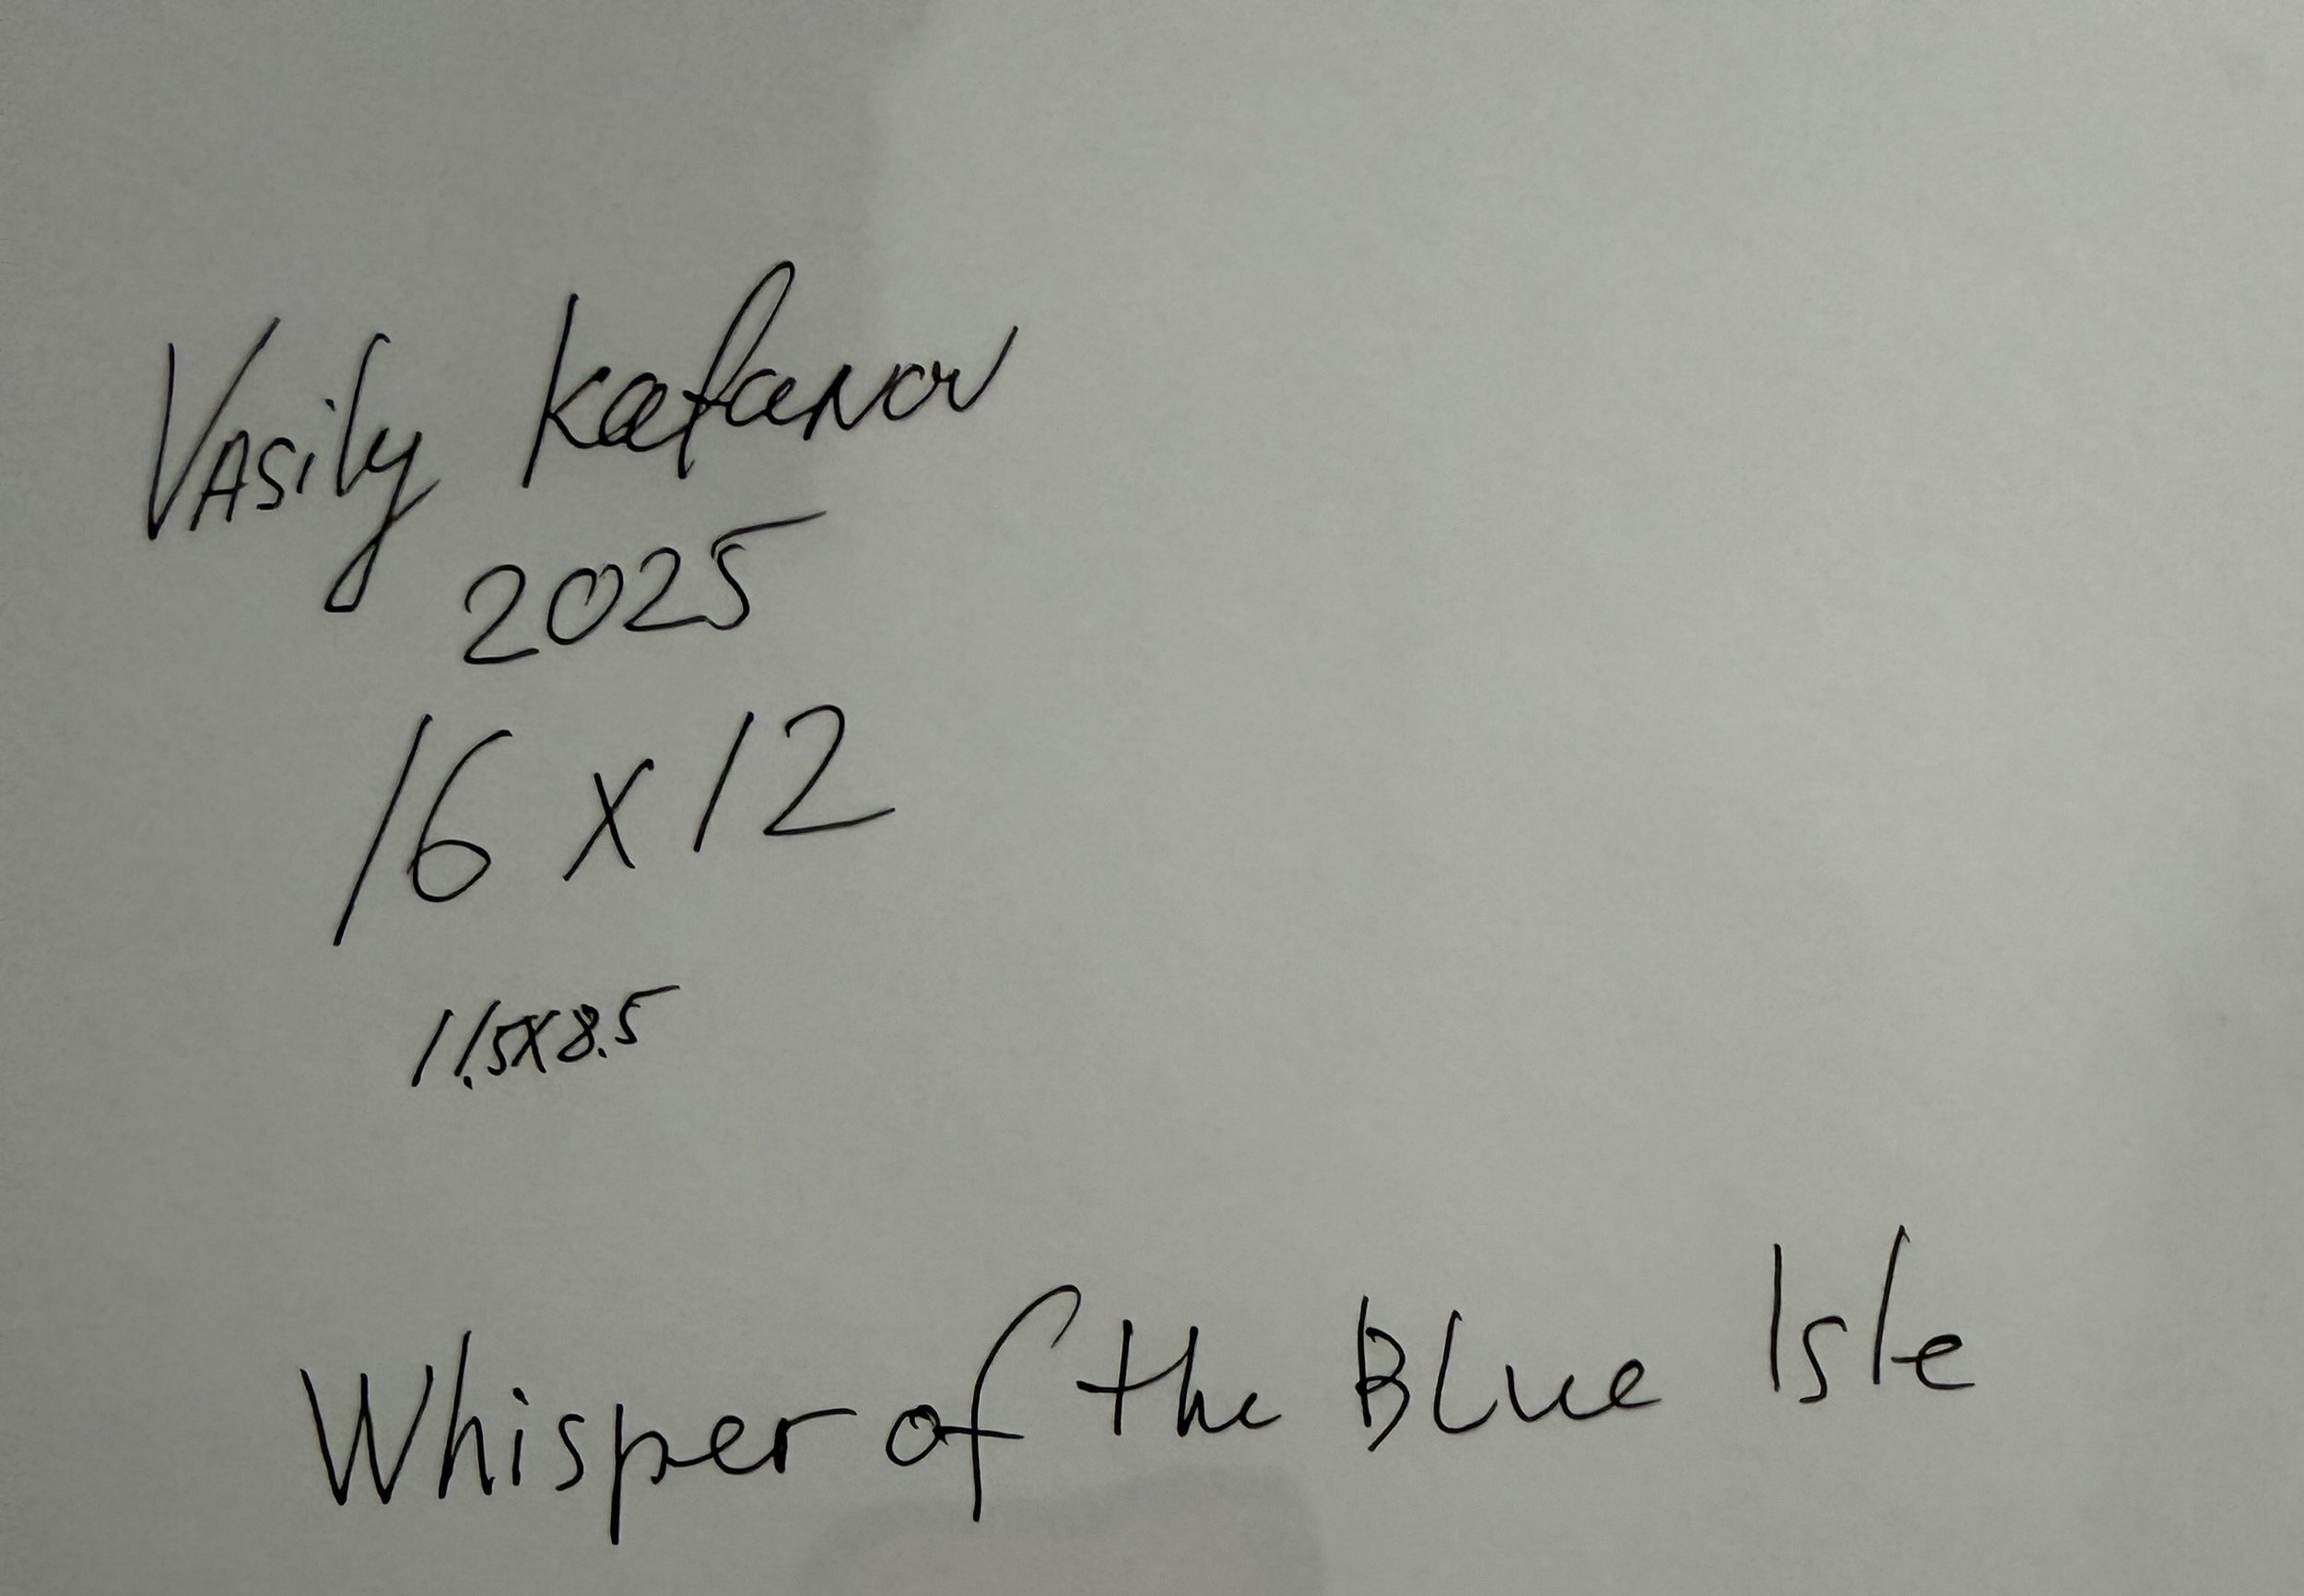 Vasily Kafanov
2025
16 x 12
11.5x8.5
Whisper of the Blue Isle